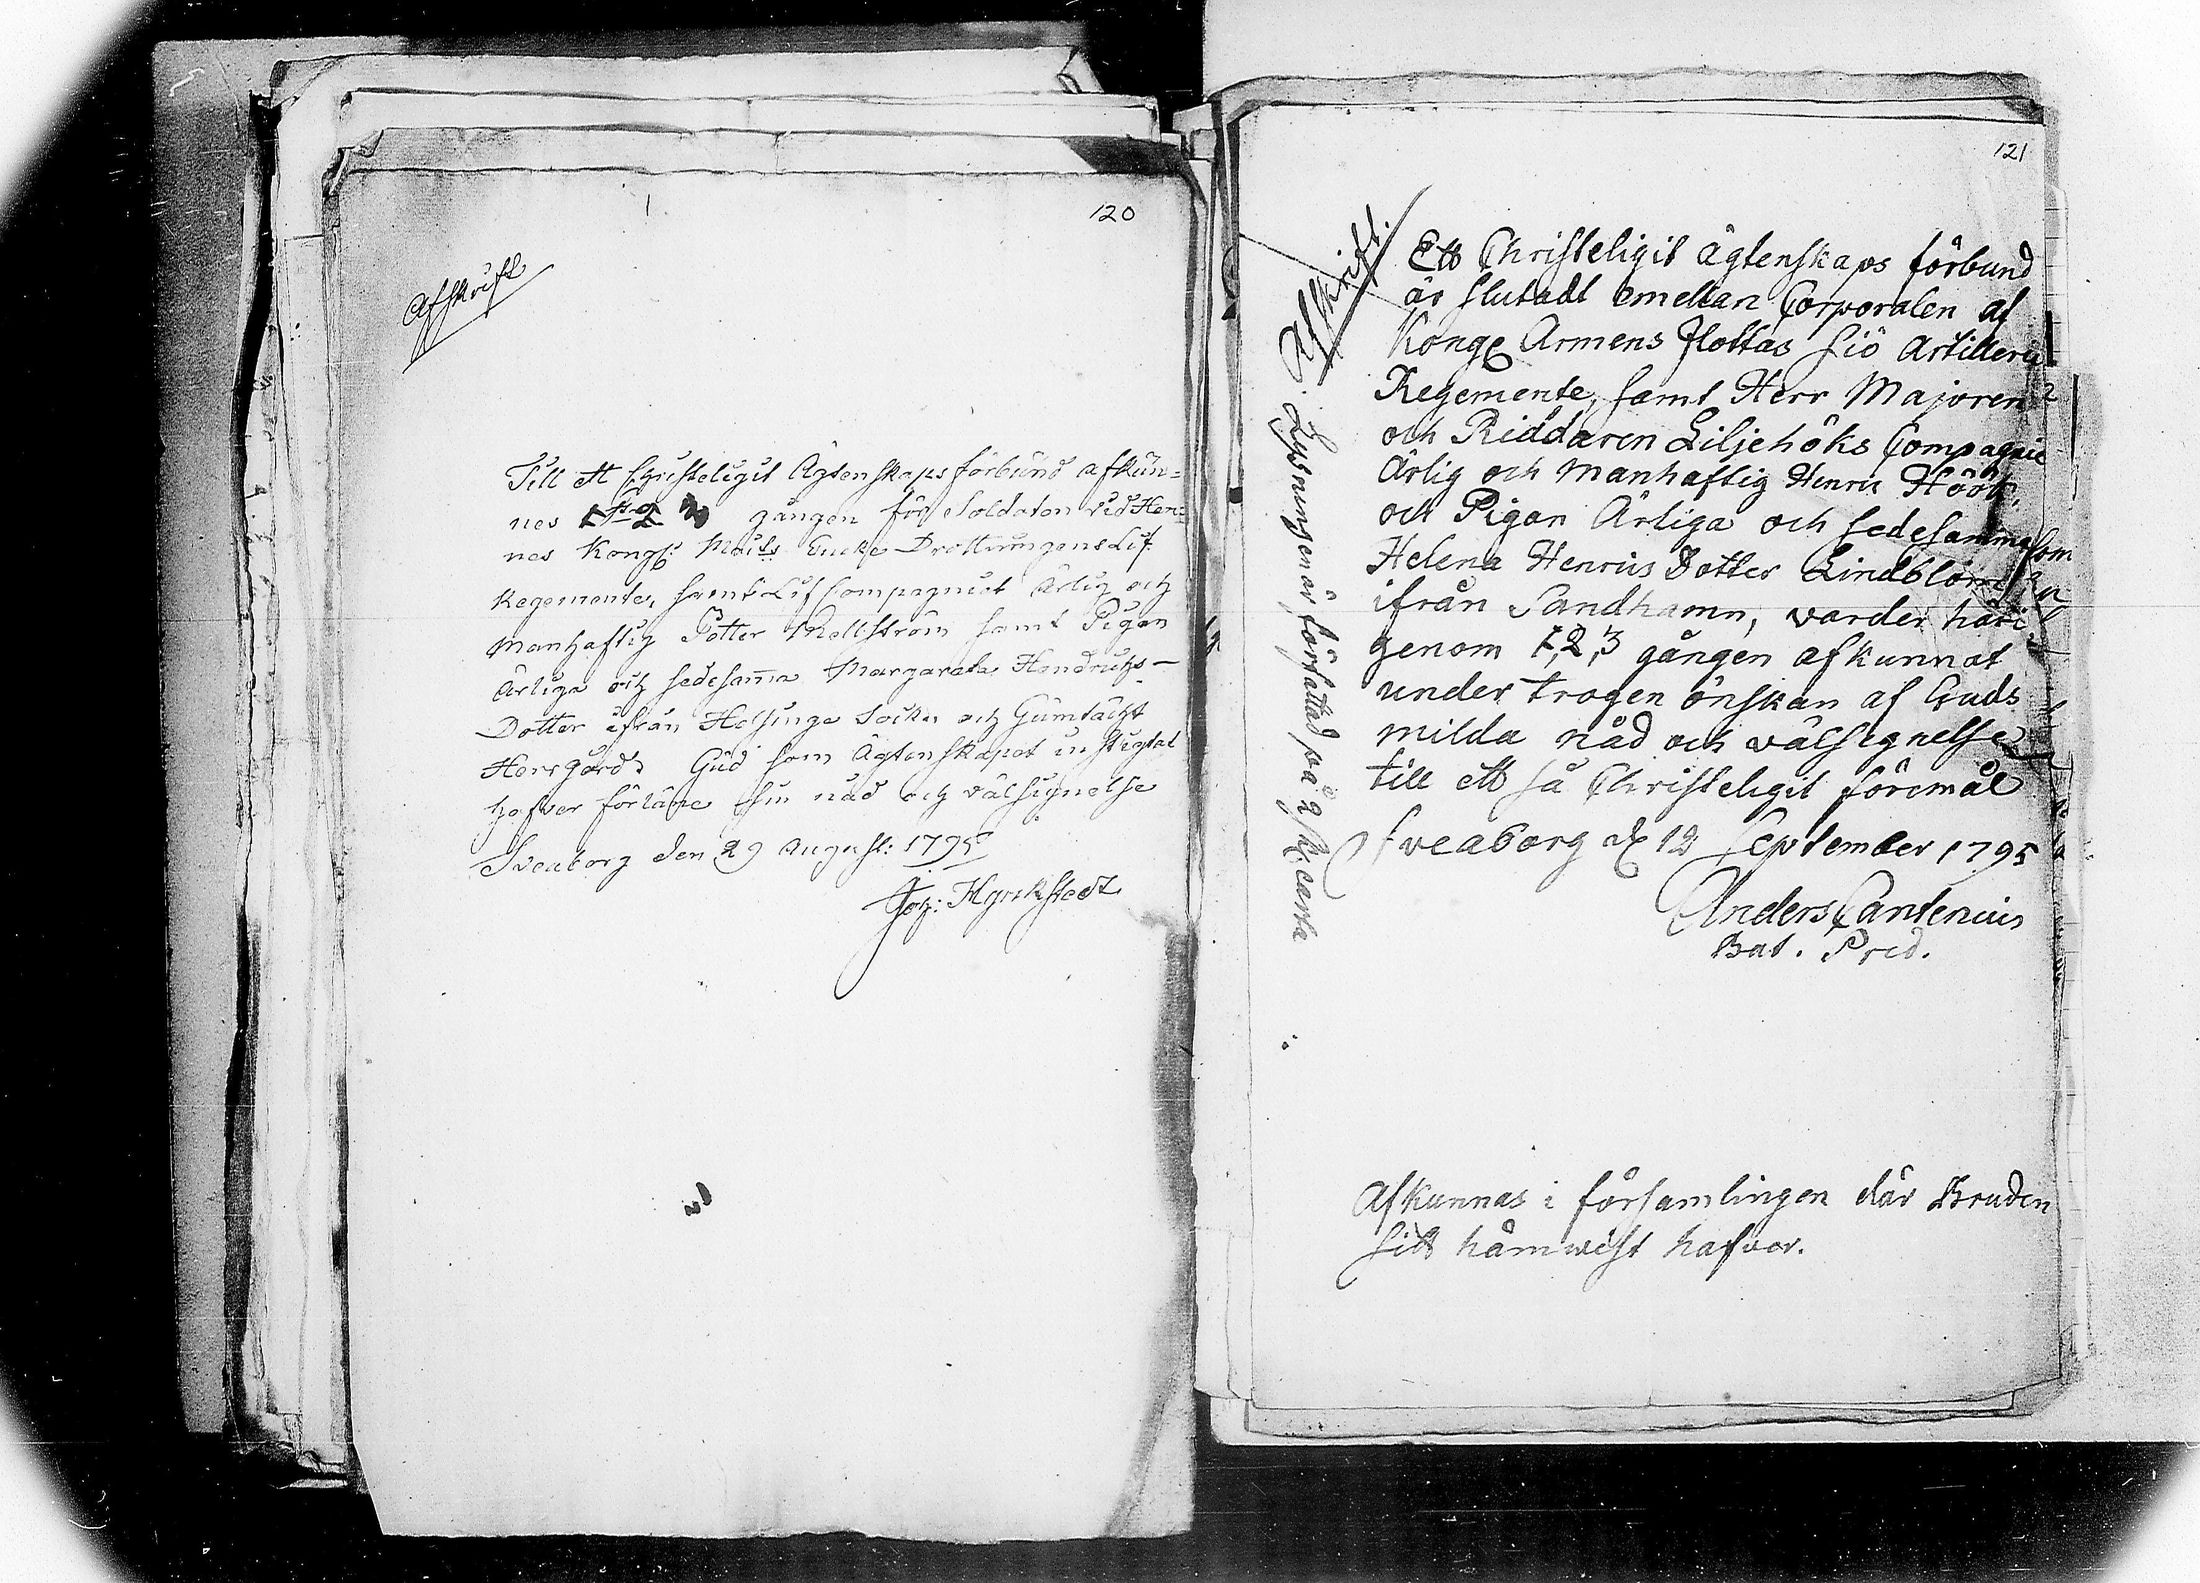 120
Afskrift
Till ett Christeligit Ägtenskaps förbund afkun=
nes 1 2 3 gången för Soldaten vid Hen=
nes Kongl: Maijts Enke Drottningens Lif
Regemente, samt Lif Compagniet Ärlig och
Manhaftig Petter Mellström samt Pigan
Ärliga och sedesamma Margareta Hendrichs-
Dotter ifrån Helsinge Sockn och Gumtächt
Herrgård. Gud som Ägtenskapet instigtat
hafver förläne sin nåd och välsignelse
Sveaborg den 29 August: 1795
Joh: Hyrckstedt
121
Afskrift.
Ett Christeligit ägtenskaps förbund
är slutadt emellan Corporalen af
Kongl Armens flottas Siö Artilleri
Regemente, samt Herr Majoren
och Riddaren Liljehöks Compagnie
Ärlig och Manhaftig Henric Höök,
och Pigan Ärliga och sedesamma
Helena Henrics Dotter Lindblom
ifrån Sandhamn, varder häri
genom 1,2,3 gången afkunnat
under trogen önskan af Guds
milda nåd och välsignelse
till ett så Christeligit föremål
Sveaborg d 12 September 1795
Anders Cantenius
Bat. Pred.
Lysningen är författad på 2 sk: carta
Afkunnas i församlingen där Bruden
sitt hämwist hafver.